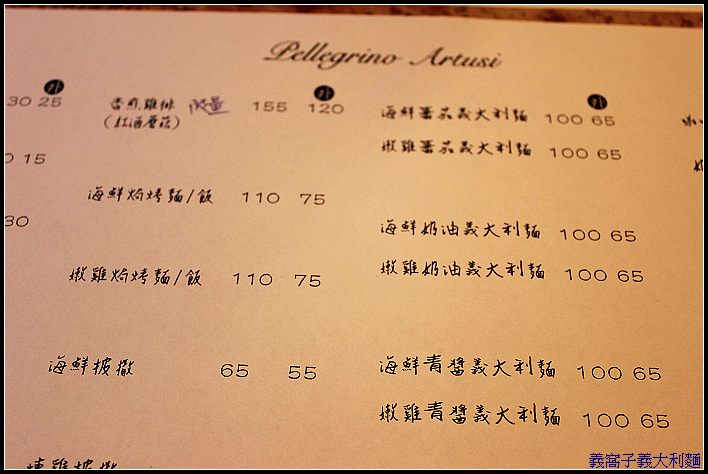 Pellegrino Artusi
外
外
外
30 25
香煎雞排 限量 155 120
(紅酒蘑菇)
海鮮蕃茄義大利麵 100 65
嫩雞蕃茄義大利麵 100 65
15
海鮮焗烤麵/飯 110 75
30
海鮮奶油義大利麵 100 65
嫩雞焗烤麵/飯 110 75
嫩雞奶油義大利麵 100 65
海鮮披撒 65 55
海鮮青醬義大利麵 100 65
嫩雞青醬義大利麵 100 65
義窩子義大利麵